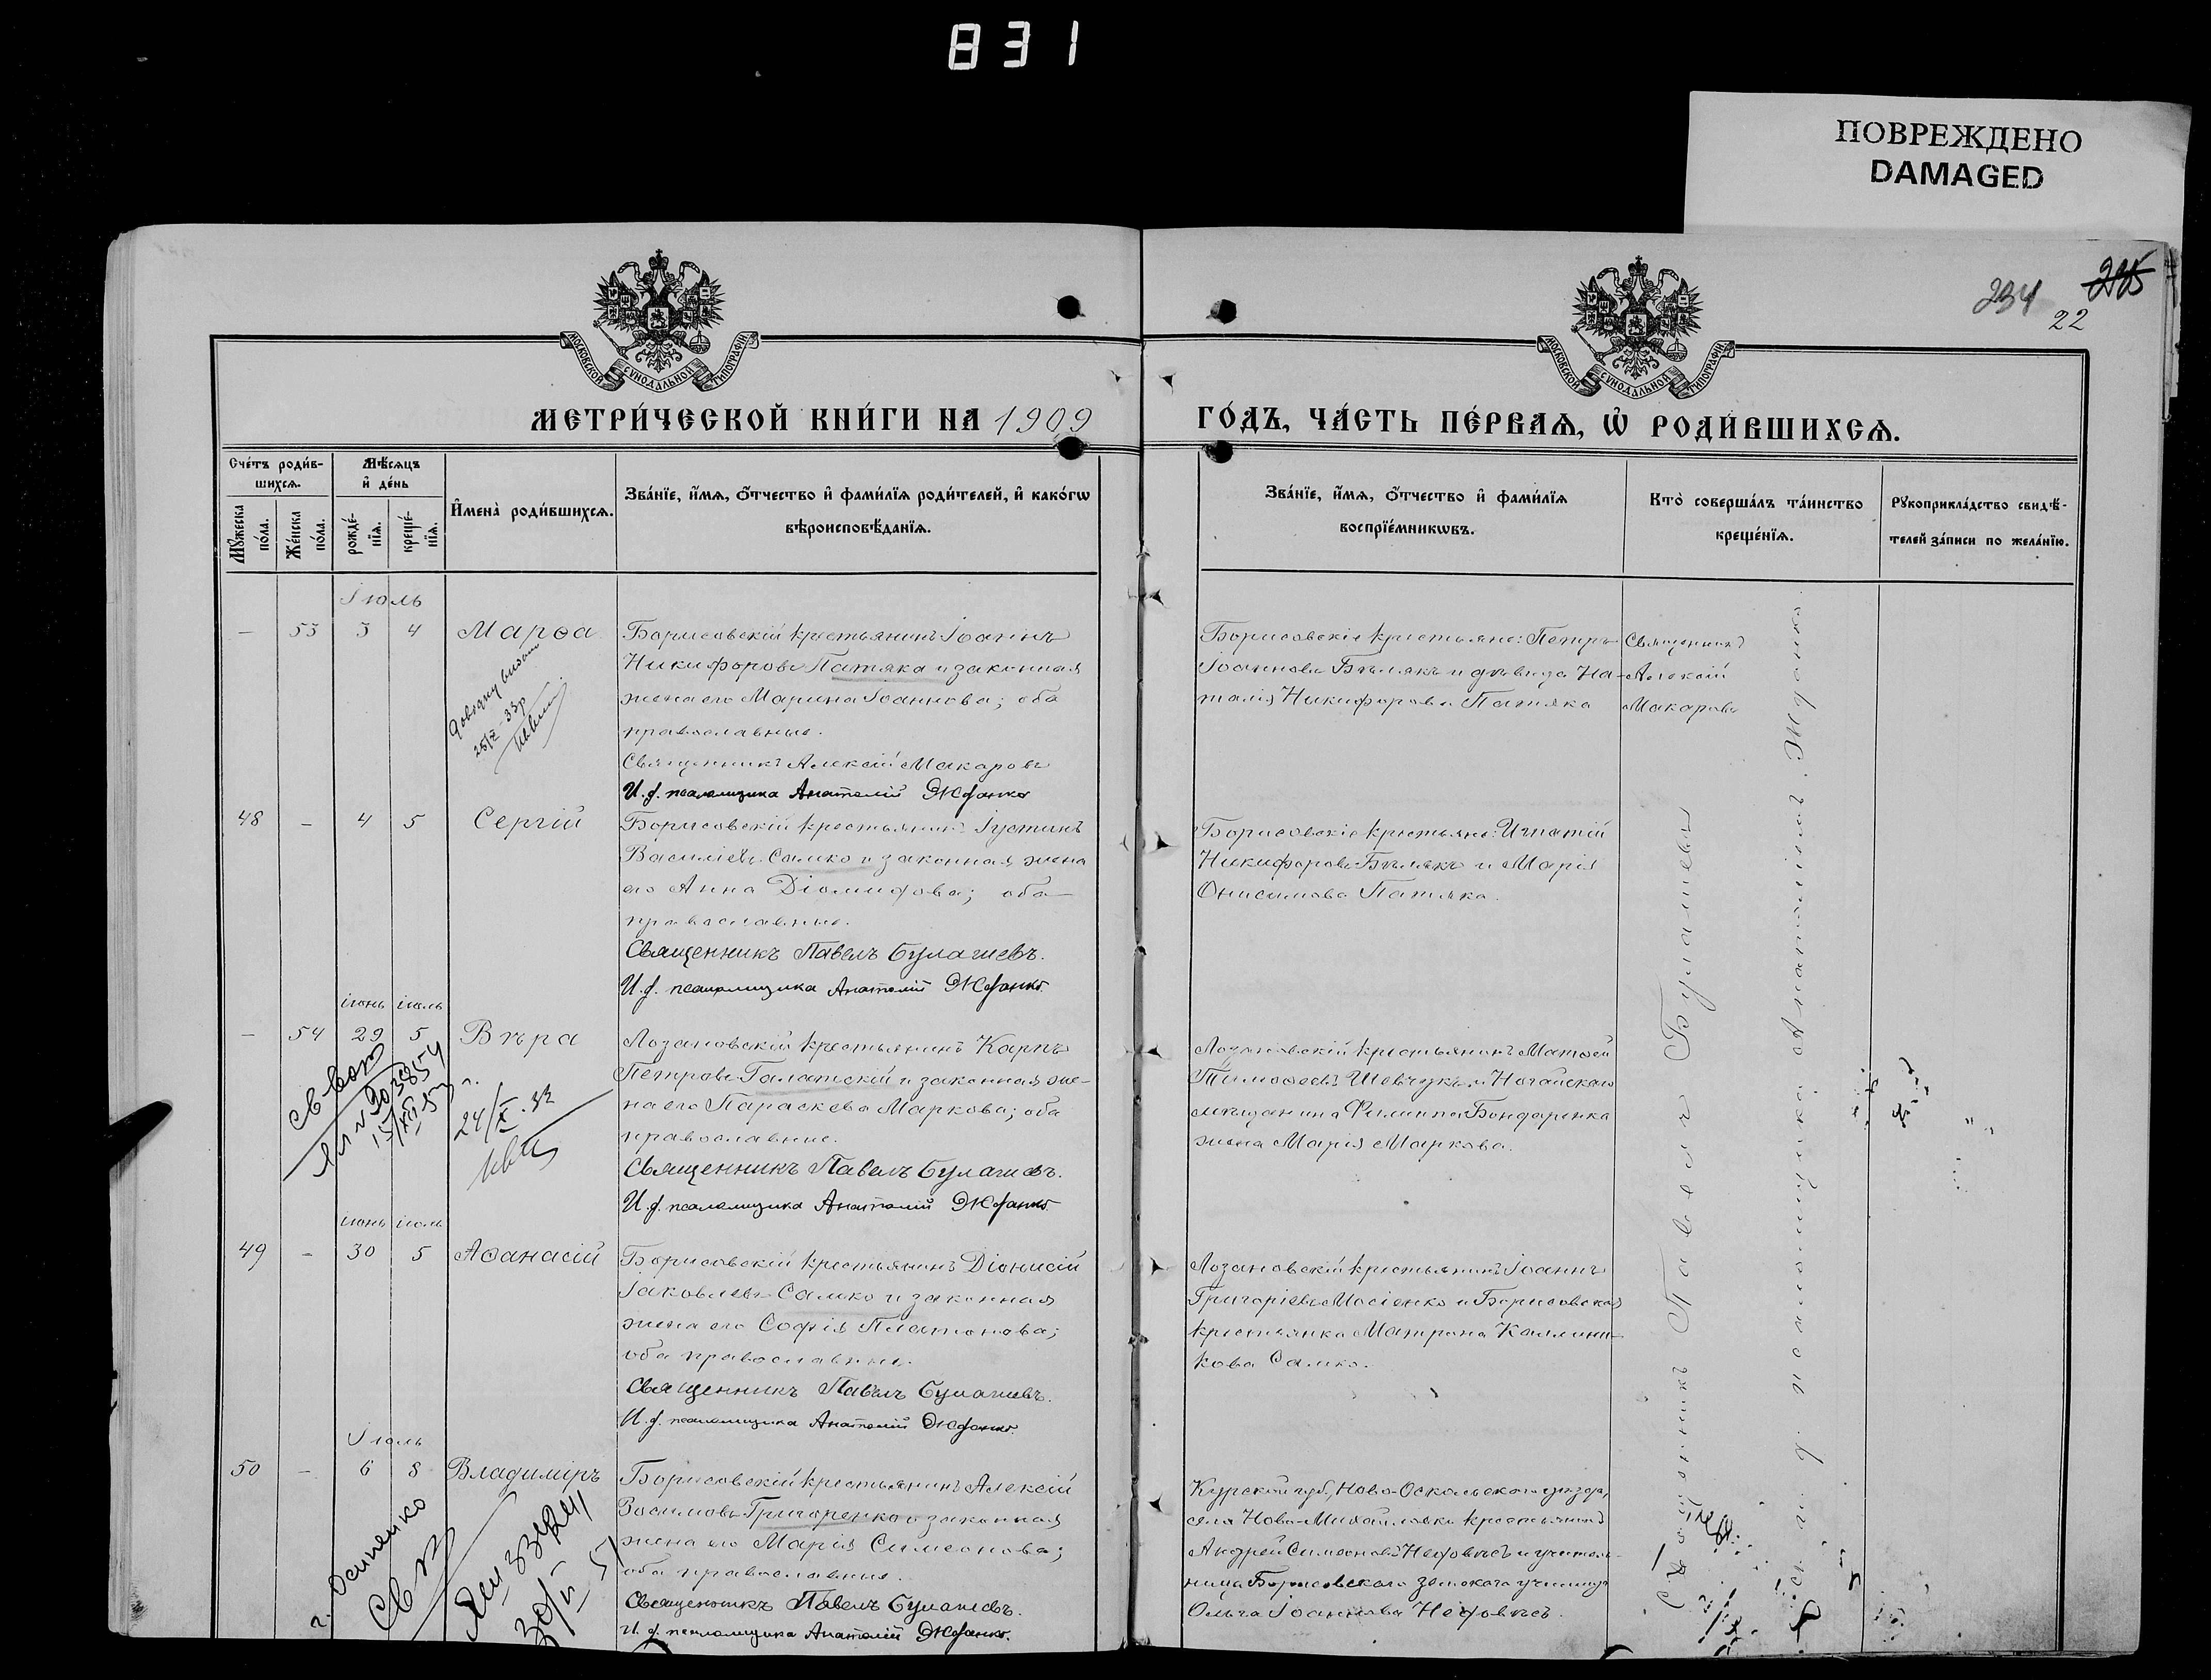 831
ПОВРЕЖДЕНО
DAMAGED
234 225
22
МОСКОВСКОЙ СѴНОДАЛЬНОЙ ТИПОГРАФІИ
МОСКОВСКОЙ СѴНОДАЛЬНОЙ ТИПОГРАФІИ
МЕТРИ́ЧЕСКОЙ КНИ́ГИ НА 1909
ГО́ДЪ, ЧА́СТЬ ПЕ́РВАЯ, Ѡ҆ РОДИ́ВШИХСЯ.
Сче́тъ роди́в-
шихся.
Мѣ́сяцъ
и҆ де́нь
Мꙋ́жеска по́ла.
Же́нска по́ла.
рожде́-
нїя.
креще́-
нїя.
И҆мена̀ роди́вшихся.
Зва́нїе, и҆́мя, ѻ҆́тчество и҆ фами́лїя роди́телей, и҆ како́гѡ
вѣроисповѣ́данїя.
Зва́нїе, и҆́мя, ѻ҆́тчество и҆ фами́лїя
воспрїе́мникѡвъ.
Кто̀ соверша́лъ та́инство
креще́нїя.
Рꙋкоприкла́дство свидѣ́-
телей за́писи по жела́нїю.
Іюль
— 53 3 4 Марѳа
Борисовскій крестьянинъ Іоаннъ
Никифоровъ Патяка и законная
жена его Марина Іоаннова; оба
православные.
Священникъ Алексій Макаровъ
И. д. псаломщика Анатолій Жданко
Довідку видано
25/X 33р
Борисовскіе крестьяне: Петръ
Іоанновъ Бѣлякъ и дѣвица На-
талія Никифорова Патяка
Священникъ
Алексій
Макаровъ
48 — 4 5 Сергій
Борисовскій крестьянинъ Іустинъ
Василіевъ Самко и законная жена
его Анна Діомидова; оба
православные.
Священникъ Павелъ Булашевъ.
И. д. псаломщика Анатолій Жданко.
Борисовскіе крестьяне: Игнатій
Никифоровъ Бѣлякъ и Марія
Онисимова Патяка.
іюнь іюль
— 54 29 5 Вѣра
Лозановскій крестьянинъ Карпъ
Петровъ Галатскій и законная же-
на его Параскева Маркова; оба
православные.
Священникъ Павелъ Булашевъ.
И. д. псаломщика Анатолій Жданко.
24/X. 33
Лозановскій крестьянинъ Матѳей
Тимоѳеевъ Шевчукъ и Ногайскаго
мѣщанина Филиппа Бондаренка
жена Марія Маркова.
іюнь іюль
49 — 30 5 Аѳанасій
Борисовскій крестьянинъ Діонисій
Іаковлевъ Самко и законная
жена его Софія Платонова;
оба православные.
Священникъ Павелъ Булашевъ.
И. д. псаломщика Анатолій Жданко.
Лозановскій крестьянинъ Іоаннъ
Григоріевъ Мосіенко и Борисовская
крестьянка Матрона Каллини-
кова Самко.
Іюль
50 — 6 8 Владиміръ
Борисовскій крестьянинъ Алексій
Зосимовъ Григоренко и законная
жена его Марія Симеонова;
оба православные.
Священникъ Павелъ Булашевъ.
И. д. псаломщика Анатолій Жданко.
г. Осипенко
Курской губ., Ново-Оскольскаго уѣзда,
села Ново-Михайловки крестьянинъ
Андрей Симеоновъ и учитель-
ница Борисовскаго земскаго училища
Ольга Іоаннова
Священникъ Павелъ Булашевъ
И. д. псаломщика Анатолій Жданко